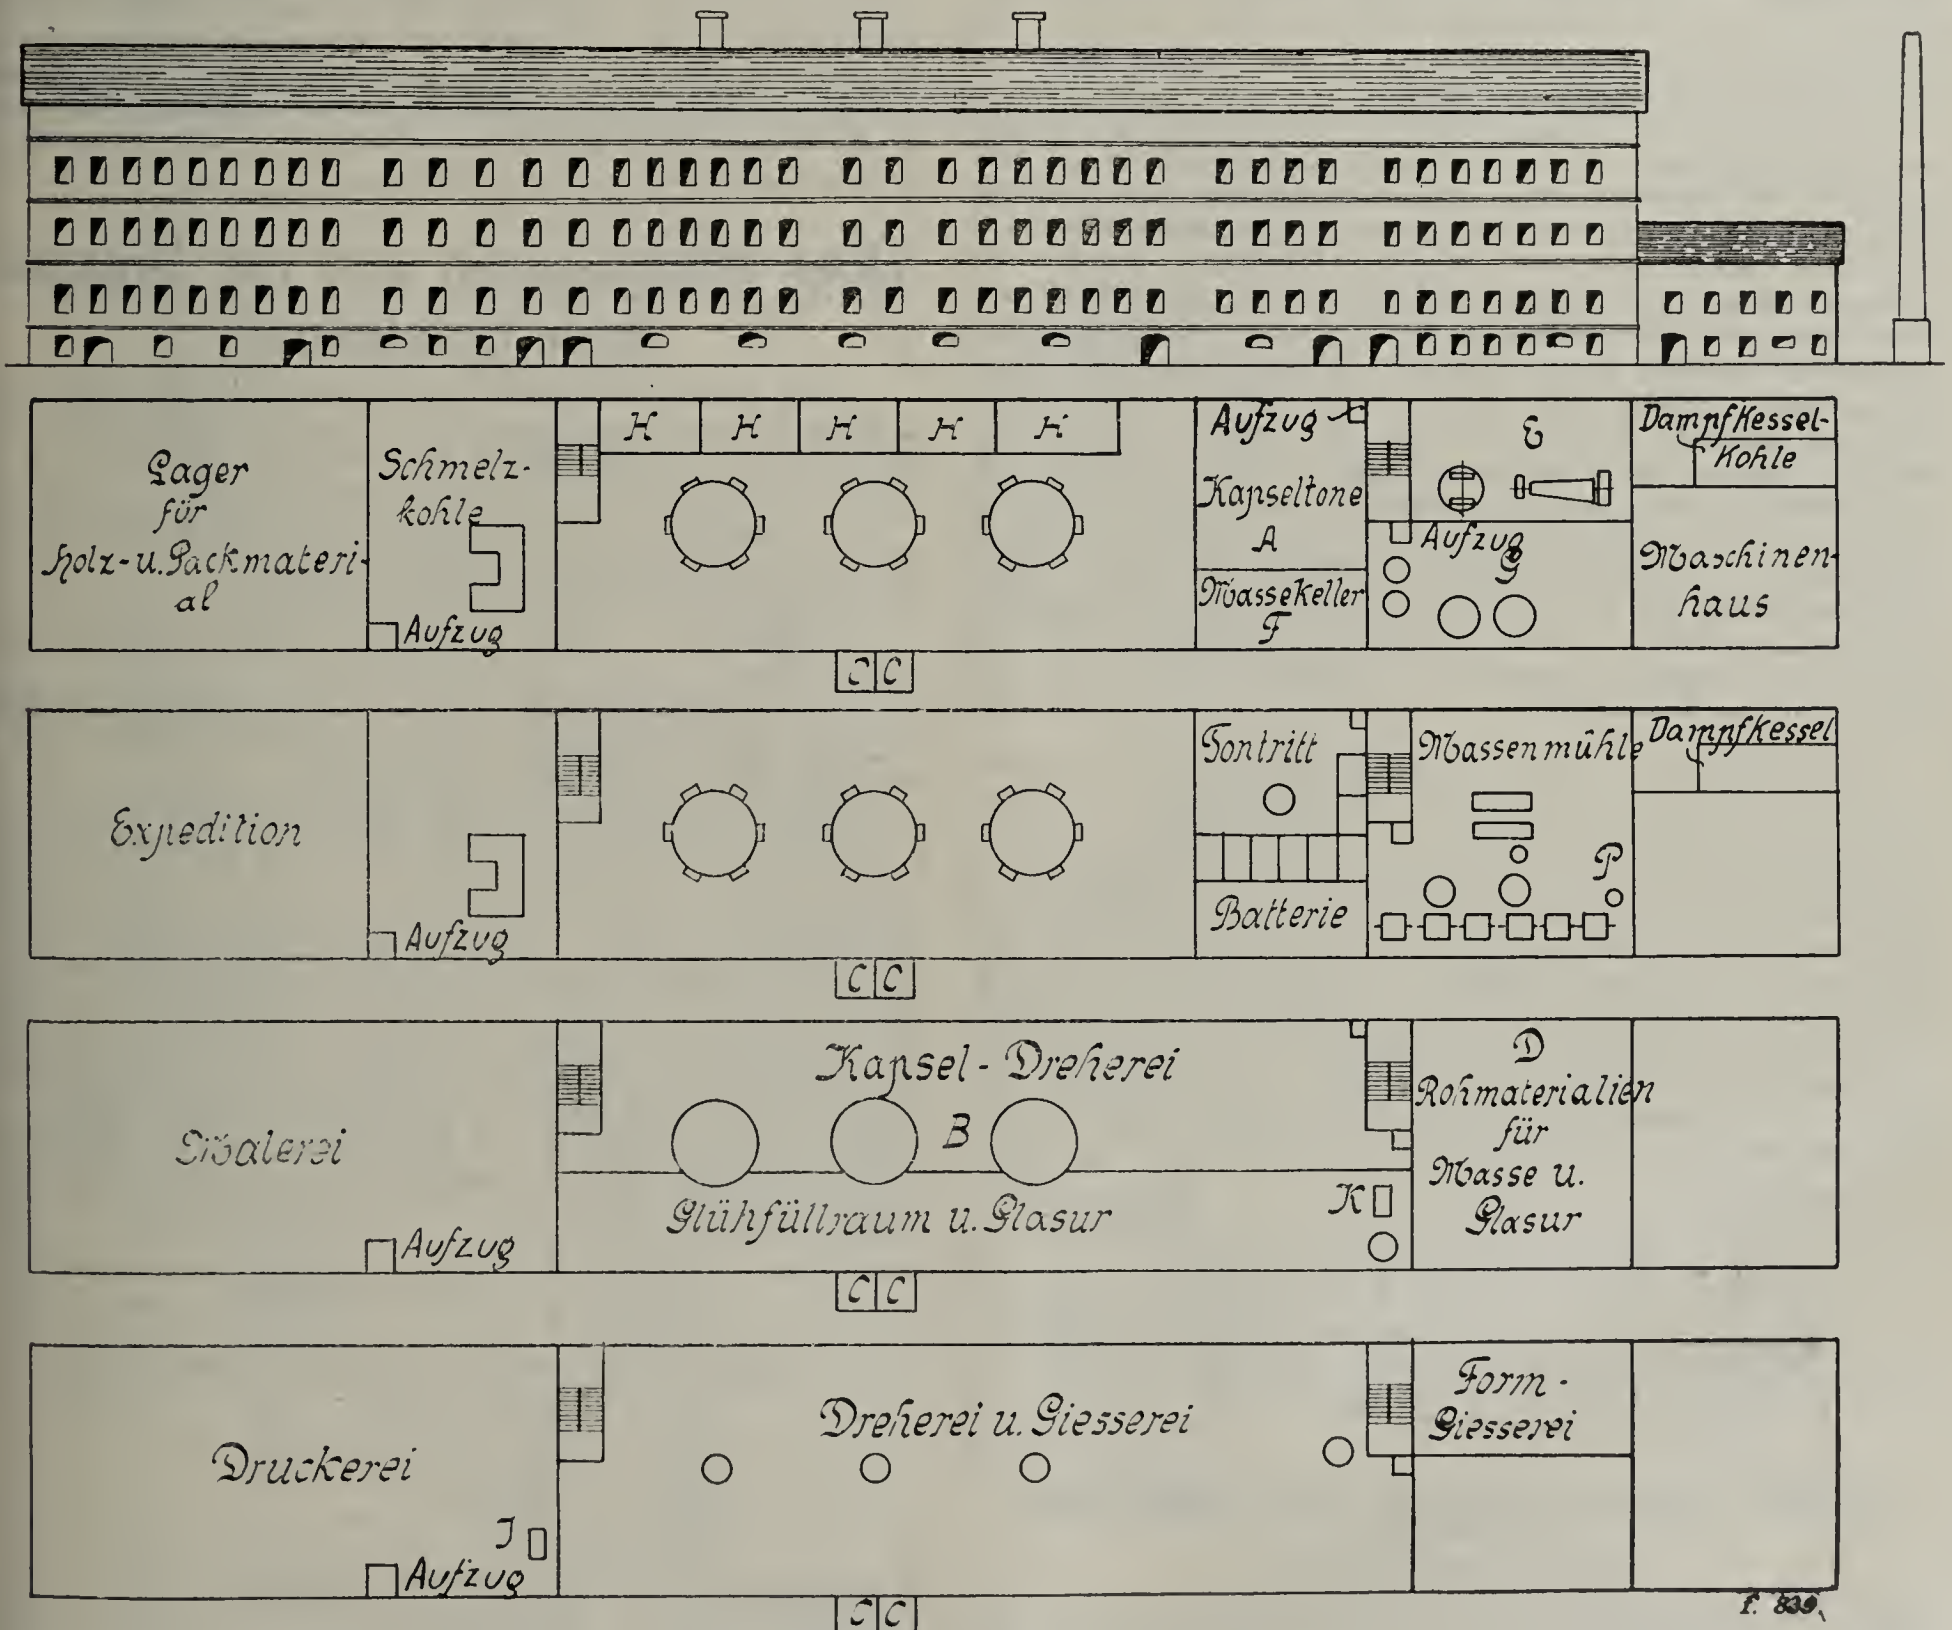 H H H H H
Lager
für
Holz- u. Packmateri-
al
Schmelz-
kohle
Aufzug
Aufzug
Kapseltone
A
Massekeller
F
E
Aufzug
G
Dampfkessel-
Kohle
Maschinen-
haus
C C
Expedition
Aufzug
Tontritt
Batterie
Massenmühle
P
Dampfkessel
C C
Malerei
Aufzug
Kapsel-Dreherei
B
Glühfüllraum u. Glasur
K
D
Rohmaterialien
für
Masse u.
Glasur
C C
Druckerei
J
Aufzug
Dreherei u. Giesserei
Form-
Giesserei
C C
f. 839.